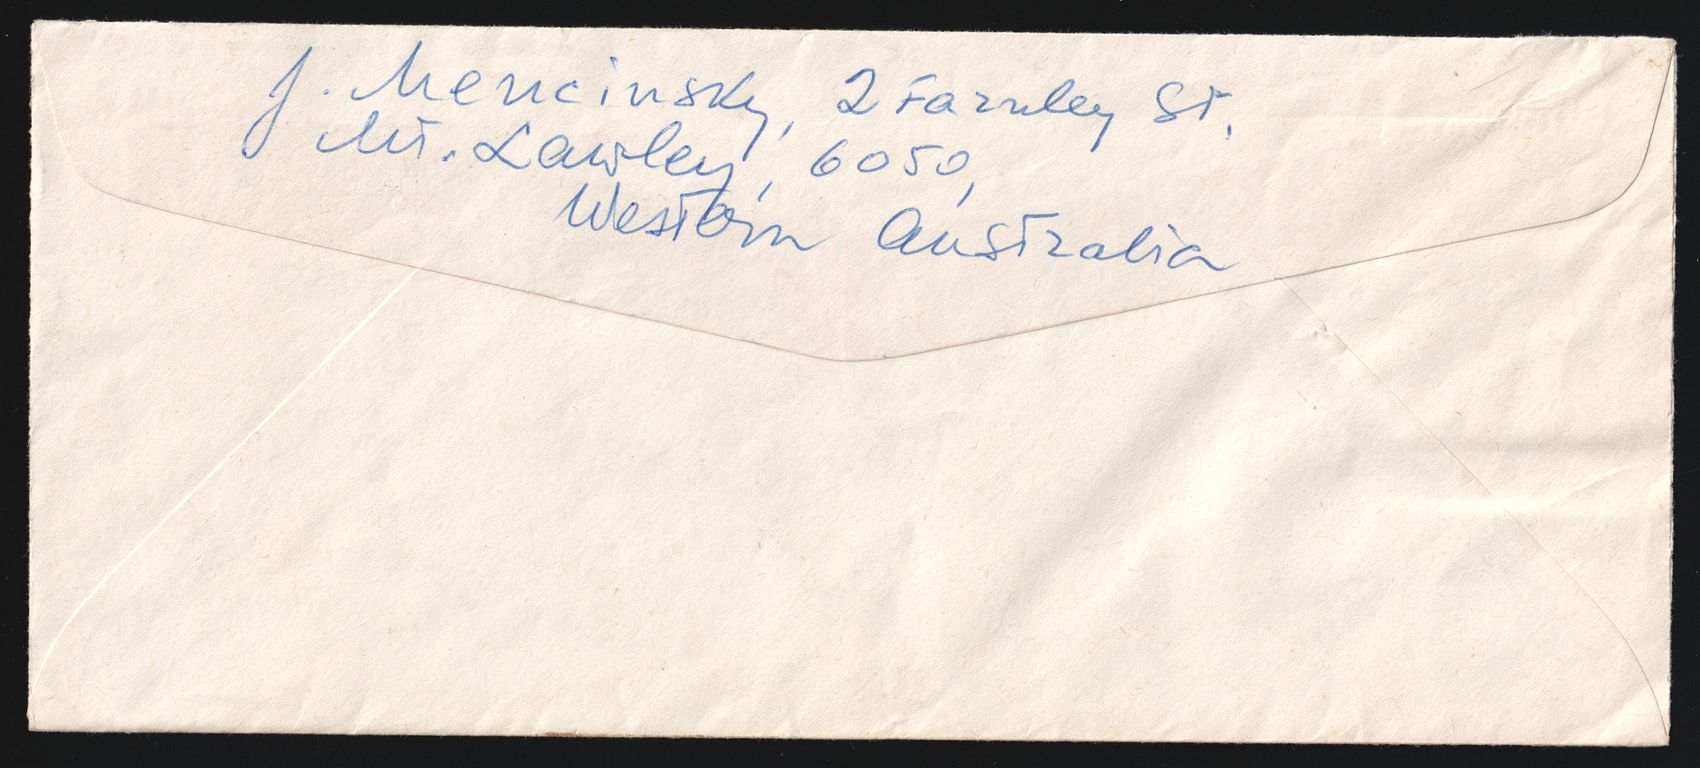 J. Mencinsky, 2 Farnley St,
Mt. Lawley, 6050,
Western Australia